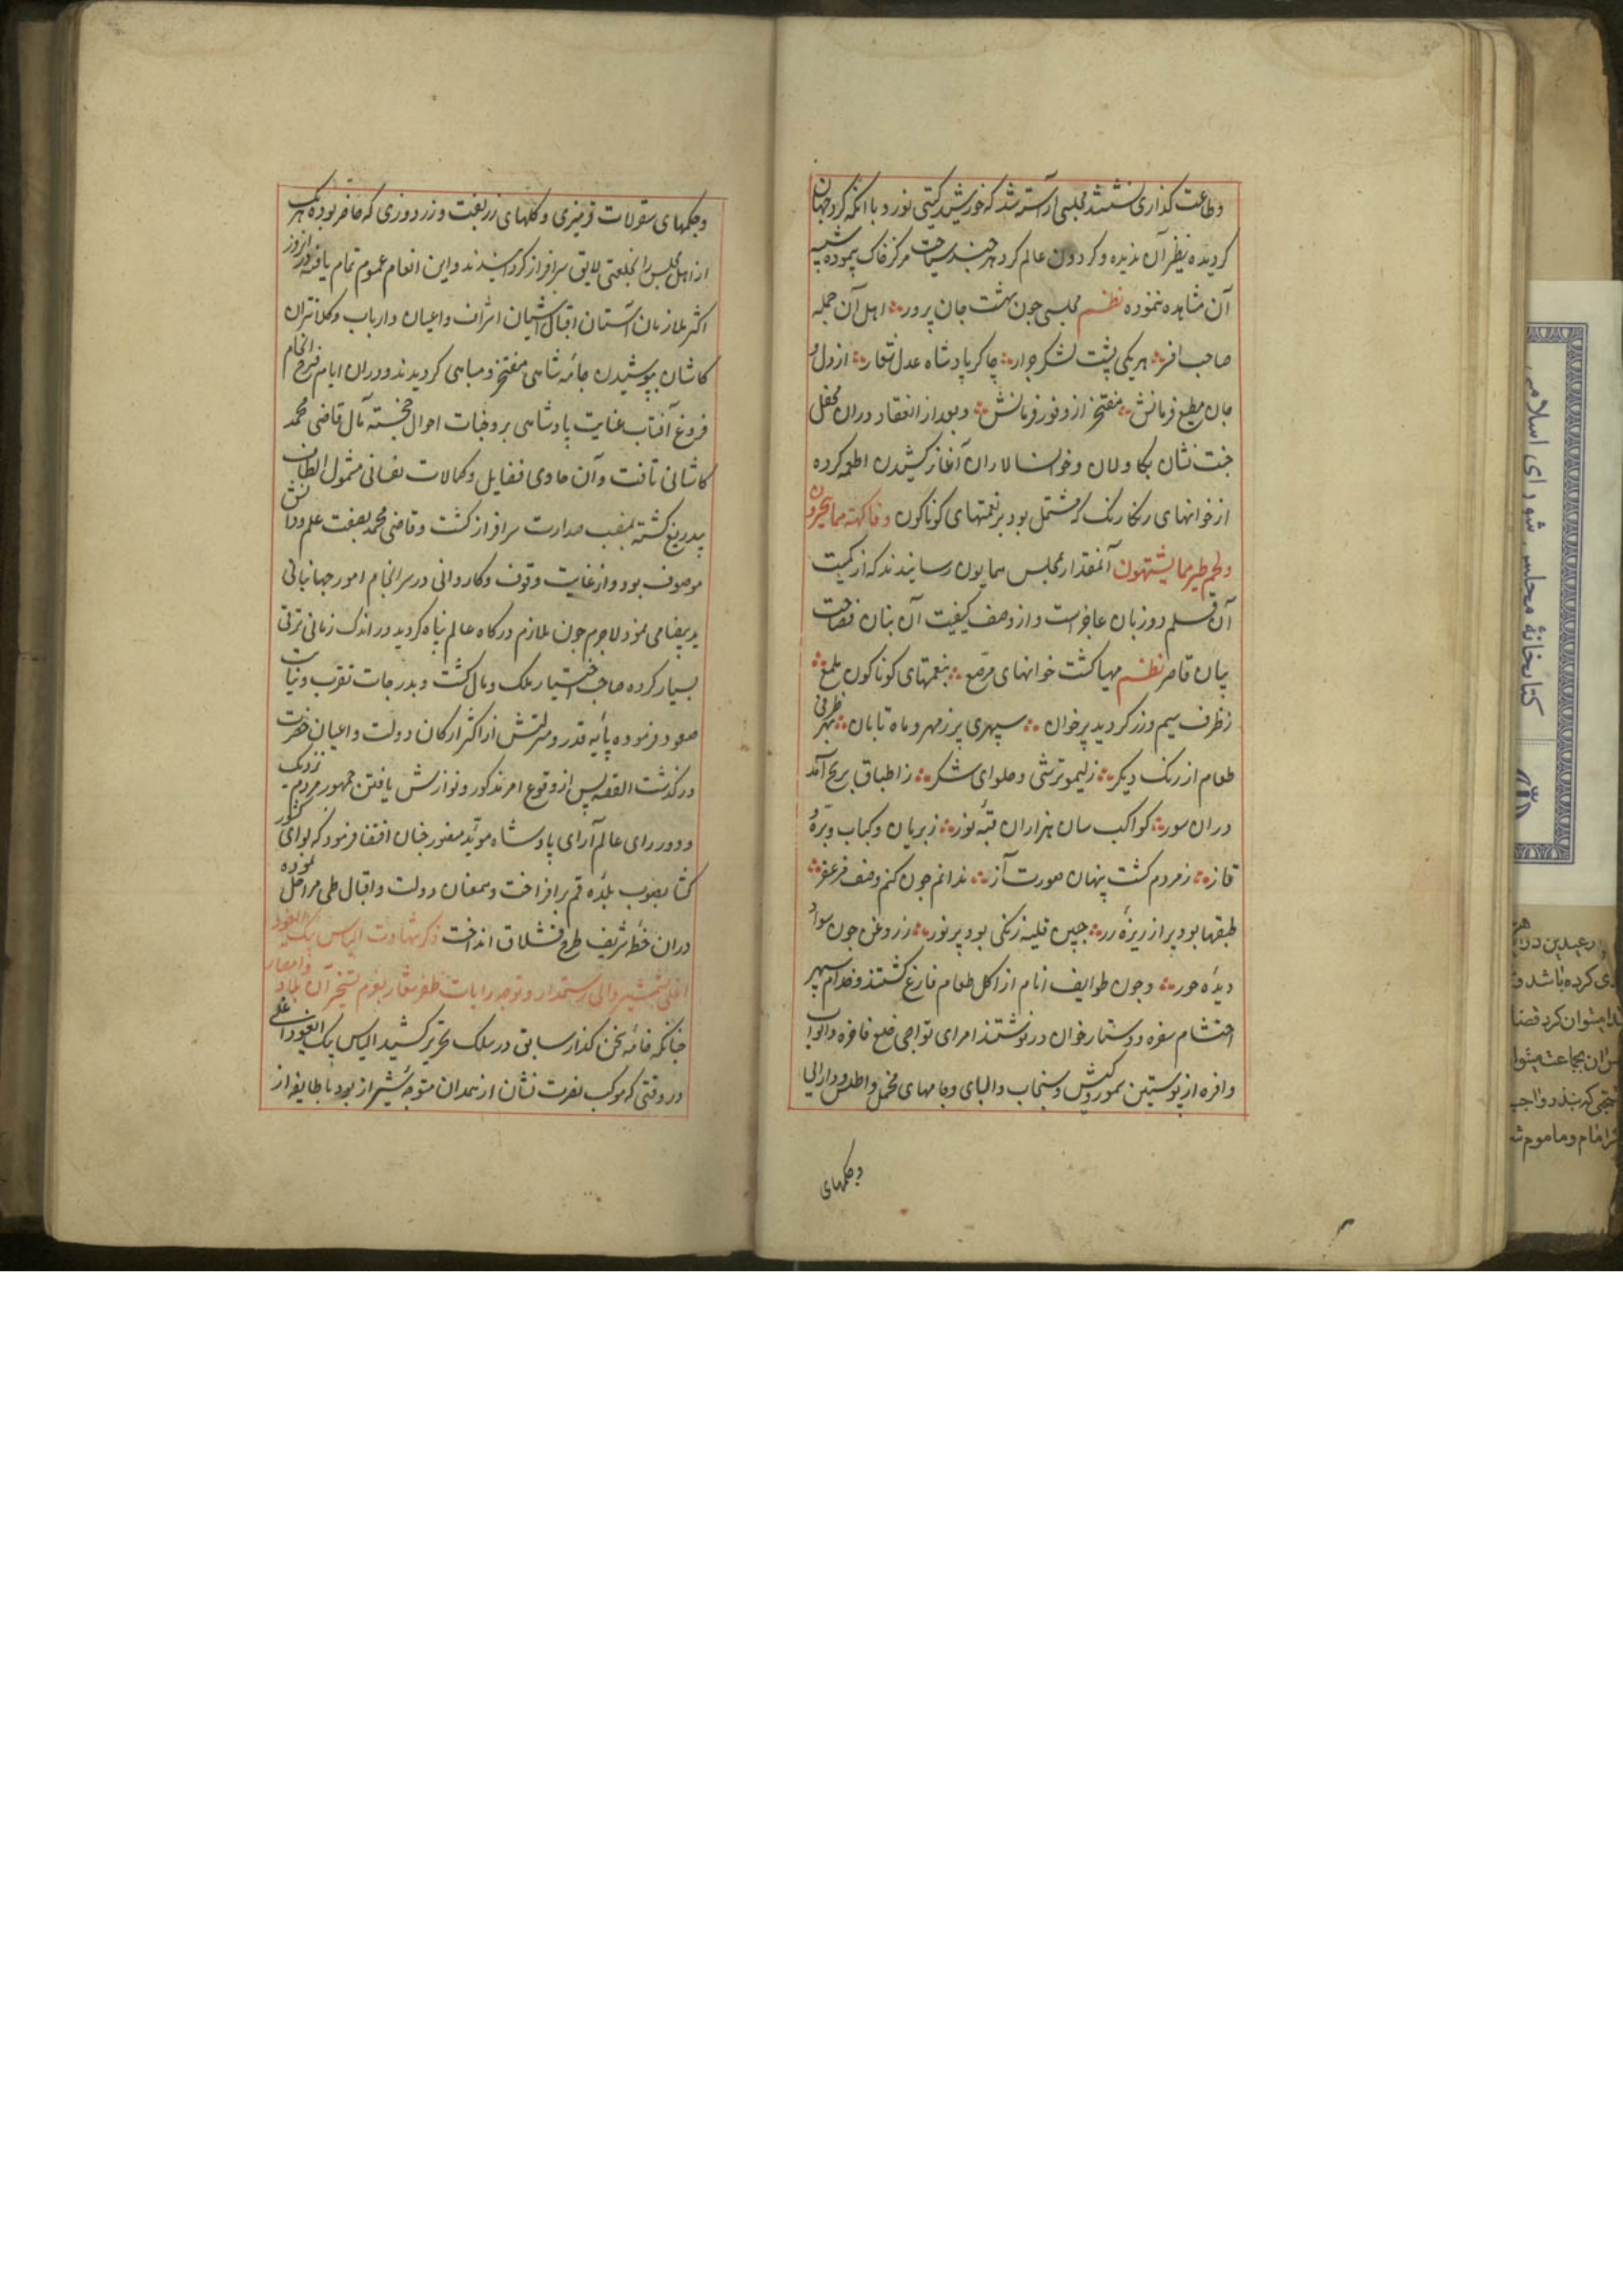 وطاعت گذاری نشستند مجلسی آراسته شد که خورشید گیتی نورد با آنکه گرد جهان
گردیده نظیر آن ندیده و گردون عالم گرد هر چند بساحت مرکز خاک پیموده شبیه
آن مشاهده ننموده نظم مجلسی چون بهشت جان پرور اهل آن جمله
صاحب افسر هر یکی پشت لشکر جرار چاکر پادشاه عدل شعار از دل و
جان مطیع فرمانش مفتخر از وفور فرمانش و بعد از انعقاد دران محفل
جنت نشان بکاولان و خوانسالاران آغاز کشیدن اطعمه کرده
از خوانهای رنگارنگ که مشتمل بود بر نعمتهای کوناکون وفاکهة مما یتخیرون
ولحم طیر مما یشتهون آنمقدار بمجلس همایون رسانیدند که از کمیت
آن قلم دو زبان عاجز است و از وصف کیفیت آن بنان فصاحت
بیان قاصر نظم مهیا کشت خوانهای مرصع بنعمتهای کوناکون ملمع
ز ظرف سیم و زر کردید پر خوان سپهری پر ز مهر و ماه تابان بهر ظرفی
طعام از رنک دیکر ز لیمو ترشی و حلوای شکر ز اطباق برنج آمد
دران سور کواکب سان هزاران قبه نور ز بریان و کباب و بره
قاز ز مردم کشت پنهان صورت آز ندانم چون کنم وصف مزعفر
طبقها بود پر از ریزهٔ زر جبین قلیه زنکی بود پر نور ز روغن چون سواد
دیدهٔ حور و چون طوایف انام از اکل طعام فارغ کشتند و خدام سپهر
احتشام سفره و دستارخوان در نوشتند امرای تواجی خلع فاخره و اثواب
وافره از پوستین سمور و کیش و سنجاب و البای و جامهای مخمل و اطلس و دارایی
وجکمهای
وجکمهای سقرلات قرمزی و کلهای زربفت و زردوزی که حاضر بوده هر یک
از اهل مجلس را بخلعتی لایق سرافراز کردانیدند و این انعام عموم تمام یافته در آنروز
اکثر ملازمان آستان اقبال آشیان اشراف و اعیان و ارباب و کلانتران
کاشان بپوشیدن جامهٔ شاهی مفتخر و مباهی کردیدند و دران ایام فرخ انجام
فروغ آفتاب عنایت پادشاهی بر وجنات احوال خجسته مآل قاضی محمد
کاشانی تافت و آن حاوی فضایل و کمالات نفسانی مشمول الطاف
بیدریغ کشته بمنصب صدارت سرافراز کشت و قاضی محمد بصفت علم و دانش
موصوف بود و از غایت وقوف و کاردانی در سرانجام امور جهانبانی
ید بیضا می نمود لاجرم چون ملازم درکاه عالم پناه کردید در اندک زمانی ترقی
بسیار کرده صاحب اختیار ملک و مال کشت و بدرجات تقرب و نیابت
صعود فرموده پایهٔ قدر و منزلتش از اکثر ارکان دولت و اعیان حضرت
در کذشت القصه پس از وقوع امر مذکور و نوازش یافتن جمهور مردم نزدیک
و دور رای عالم آرای پادشاه مؤید منصور چنان اقتضا فرمود که لوای کشور
کشا بصوب بلده قم برافراخت و بمعنان دولت و اقبال طی مراحل نموده
دران خطهٔ شریف طرح قشلاق انداخت ذکر شهادت الیاس بیک ایغود
اغلی بشمشیر والی رستمدار و توجه رایات ظفر شعار بعزم تسخیر آن بلاد و امصار
چنانکه خامهٔ سخن کذار سابق در سلک تحریر کشید الیاس بیک ایغود اغلی
در وقتی که موکب نصرت نشان از همدان متوجه شیراز بود با طایفه از
کتابخانهٔ مجلس شورای اسلامی